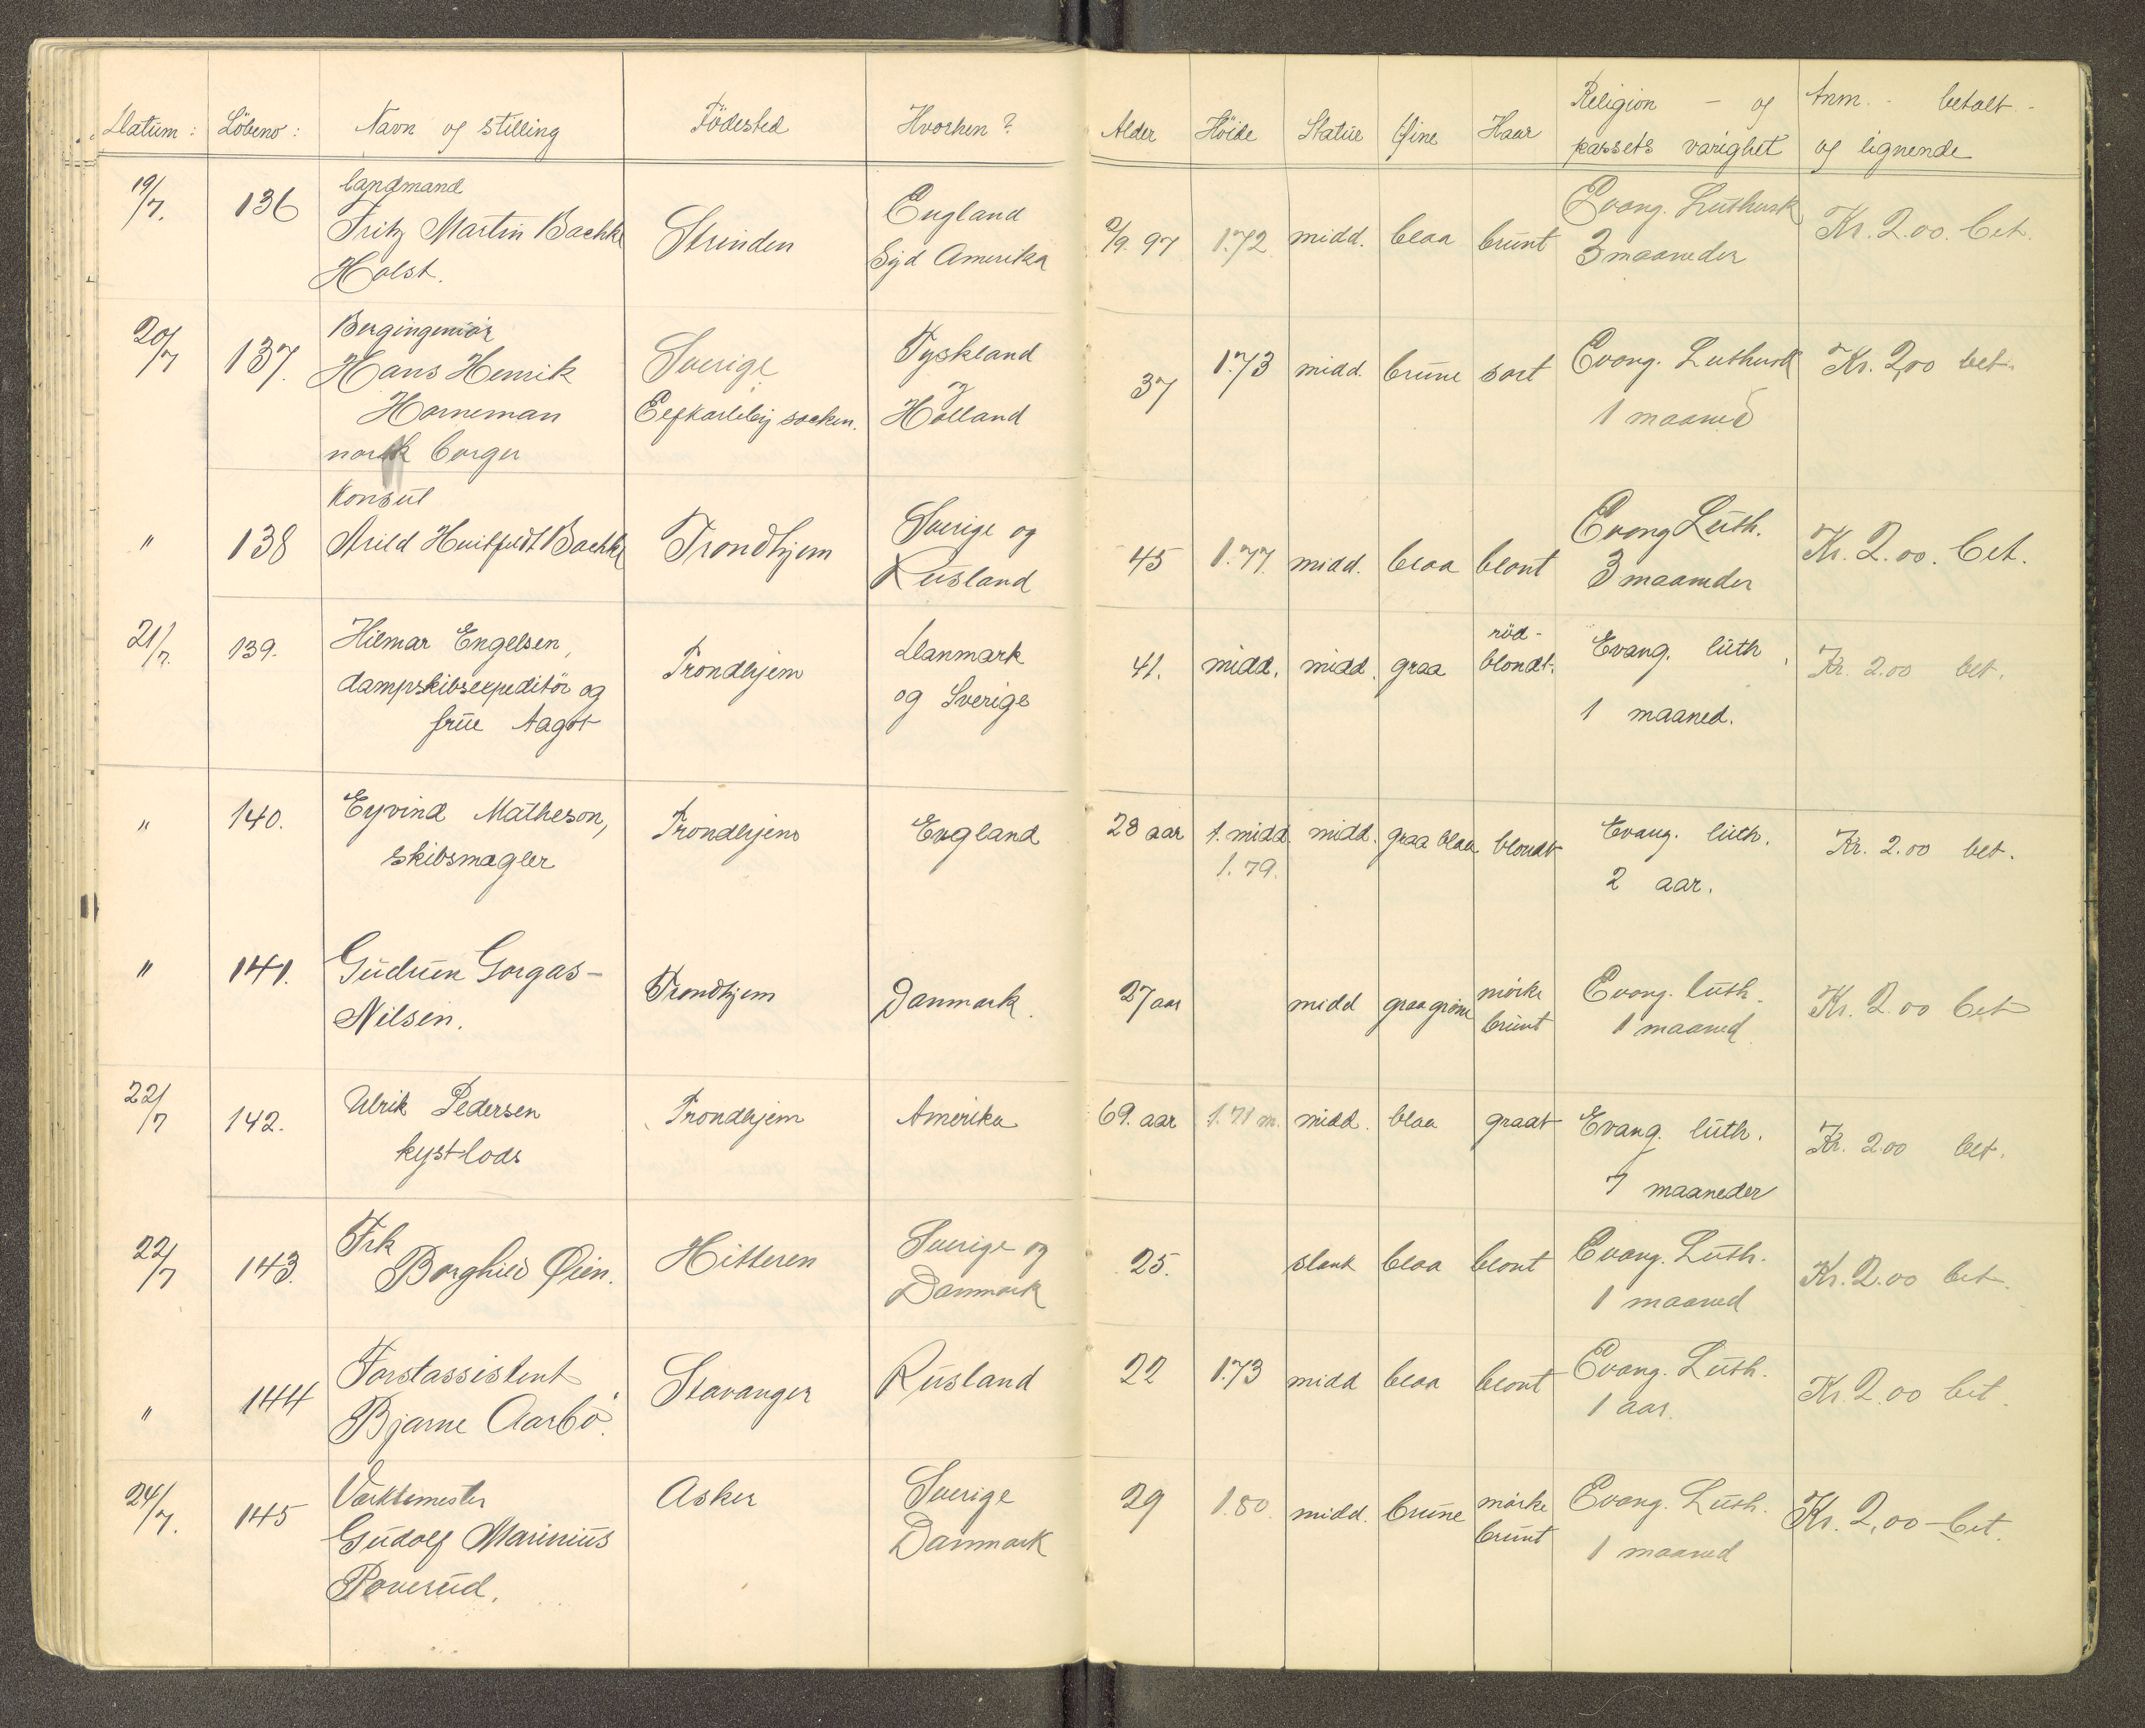 Datum: Löbeno: Navn og stilling Födested Hvorhen? Alder Höide Statur Øine Haar Religion - og passets varighet Anm. - betalt - og lignende
19/7. 136 Landmand Fritz Martin Bachke Holst. Strinden England Syd Amerika 2/9. 97 1.72 midd. blaa brunt Evang. Luthersk 3 maaneder Kr. 2.00. bet.
20/7 137. Bergingeniör Hans Henrik Horneman norsk borger Sverige Elfkarleby socken. Tyskland og Holland 37 1.73 midd. brune sort Evang. Luthersk 1 maaned Kr. 2,00 bet.
" 138 Konsul Arild Huitfeldt Bachke Trondhjem Sverige og Rusland 45 1.77. midd. blaa blont Evang Luth. 3 maaneder Kr. 2.00. bet.
21/7. 139. Hilmar Engelsen, dampskibsexpeditör og frue Aagot Trondhjem Danmark og Sverige 41. midd. midd. graa röd-blondt. Evang. luth. 1 maaned. Kr. 2.00 bet.
" 140. Eyvind Matheson, skibsmægler Trondhjem England 28 aar 1. midd. 1.79. midd. graa blaa blondt Evang. luth. 2 aar. Kr. 2.00 bet.
" 141. Gudrun Gorgas-Nilsen. Trondhjem Danmark. 27 aar midd graa grøne mörke brunt Evang. luth. 1 maaned Kr. 2.00 bet
22/7 142. Ulrik Pedersen kystlods Trondhjem Amerika 69. aar 1.71 m. midd. blaa graat Evang. luth. 7 maaneder Kr. 2.00 bet.
22/7 143. Frk Borghild Øien. Hitteren Sverige og Danmark 25. slank blaa blont Evang. Luth. 1 maaned Kr. 2.00 bet.
" 144 Forstassistent Bjarne Aarbö. Stavanger Rusland 22 1.73 midd blaa blont Evang. Luth. 1 aar. Kr. 2.00 bet.
24/7. 145 Værktsmester Gudolf Marinius Poverud. Asker Sverige Danmark 29 1.80. midd. brune mörke brunt Evang. Luth. 1 maaned Kr. 2,00 - bet.